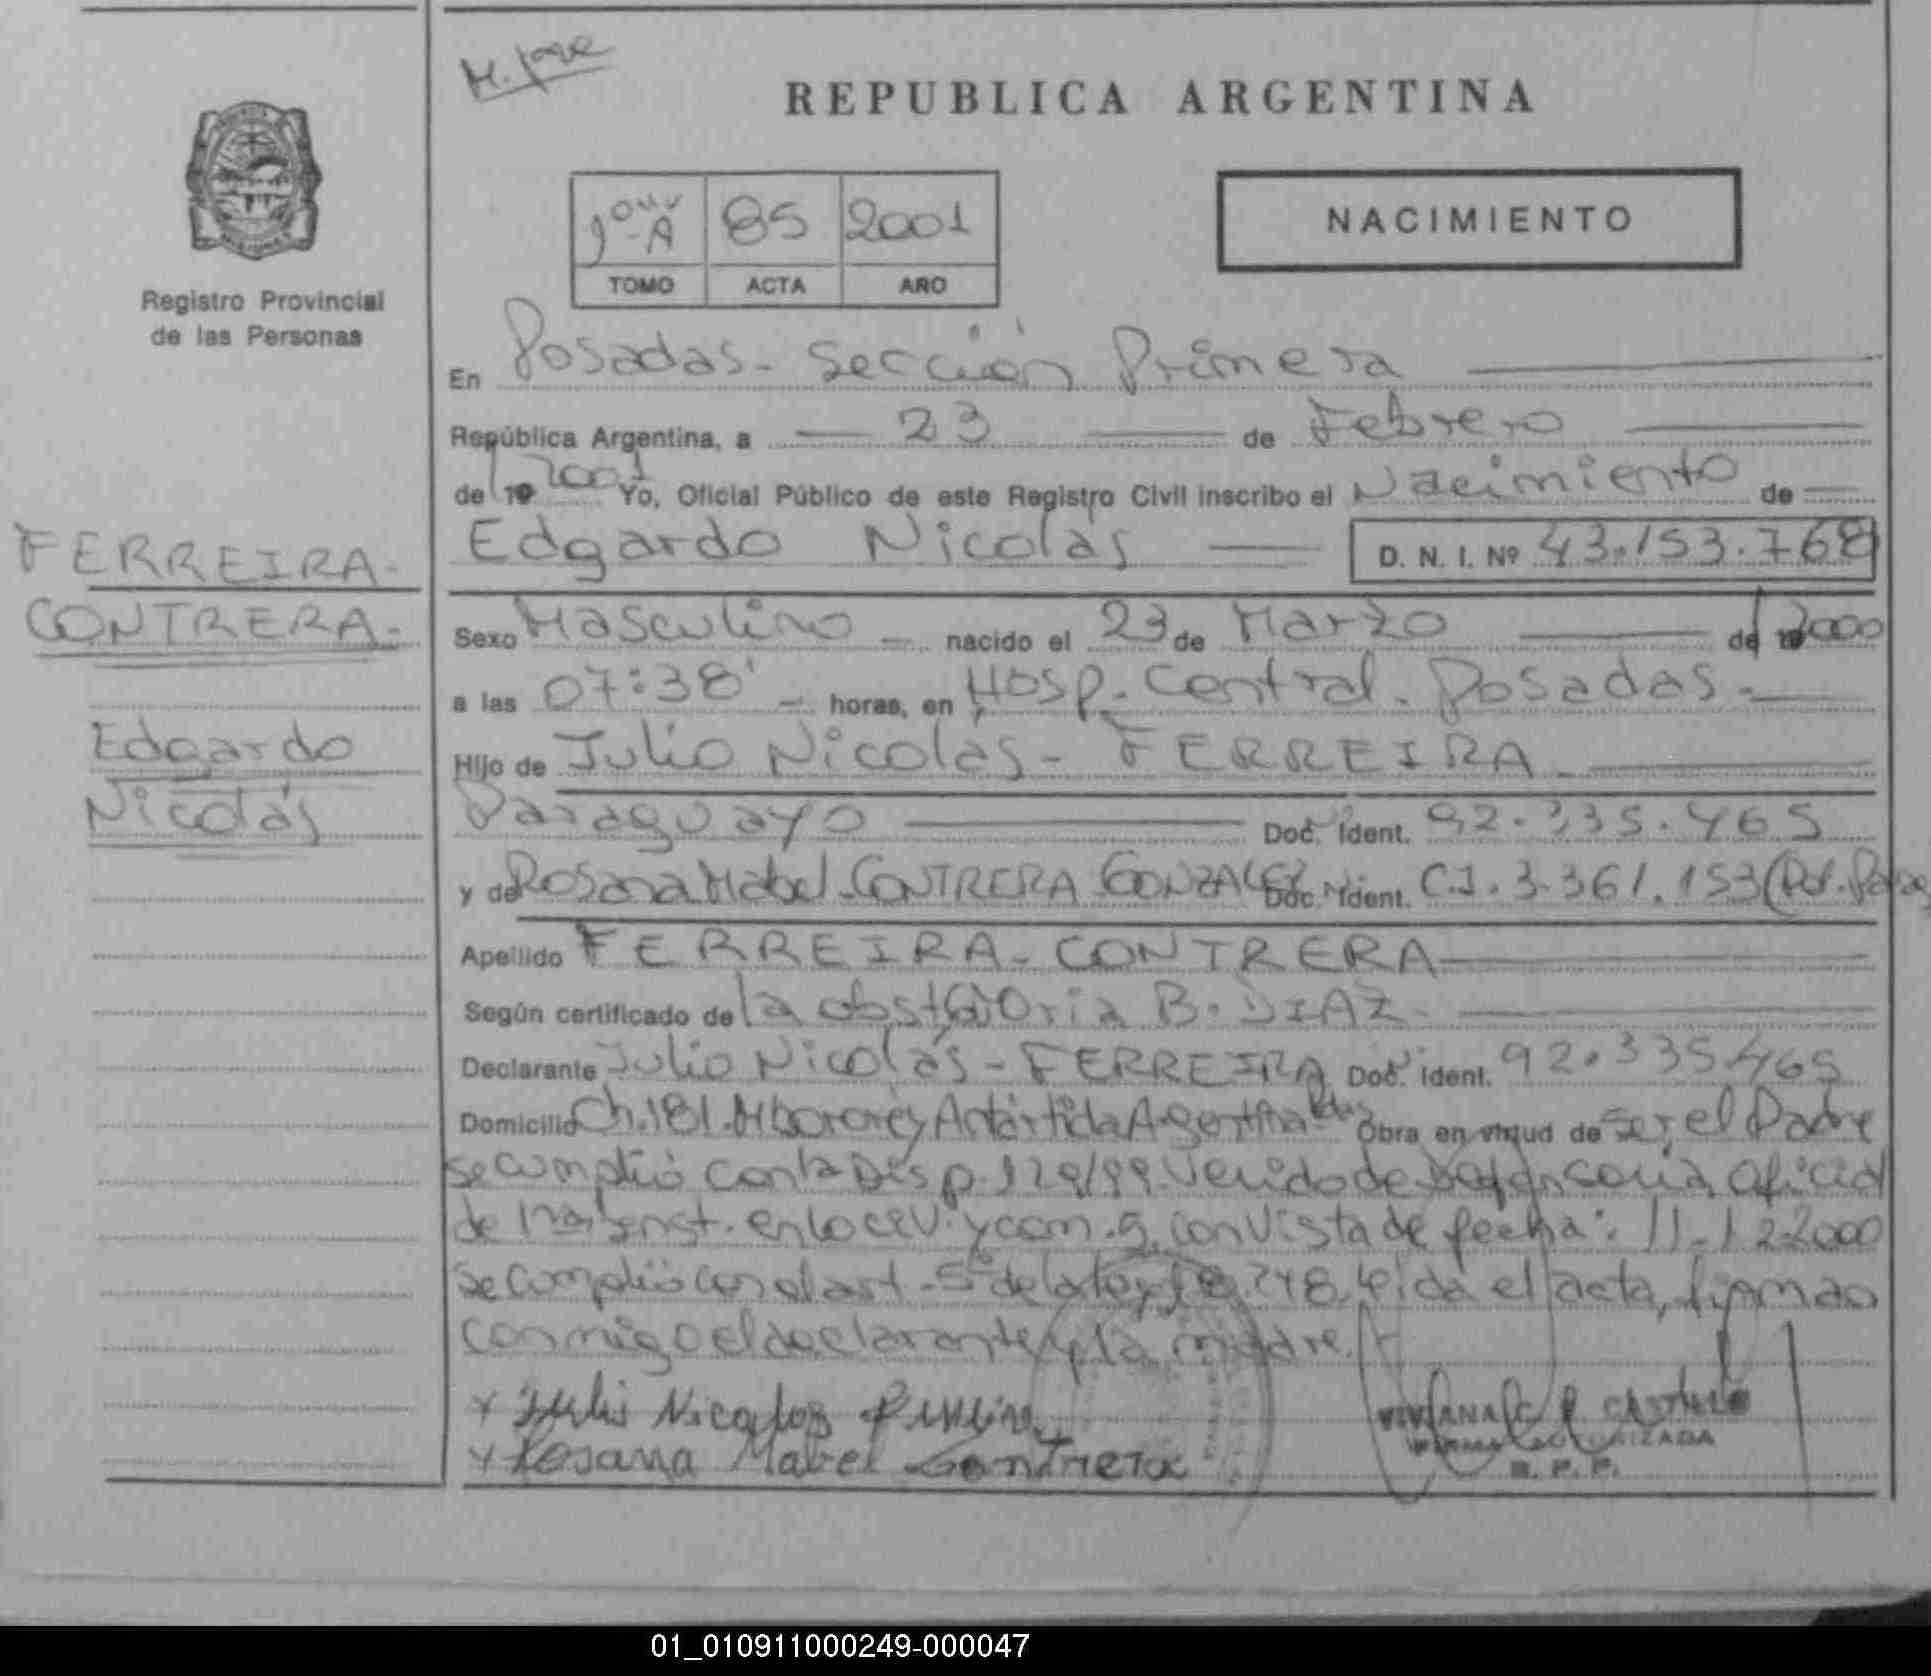 M. José
REPUBLICA ARGENTINA
1º A 85 2001
TOMO ACTA AÑO
NACIMIENTO
Registro Provincial
de las Personas
En Posadas - Sección Primera
República Argentina, a 23 de Febrero
de 19 2001 Yo, Oficial Público de este Registro Civil inscribo el Nacimiento de
FERREIRA-
CONTRERA-
Edgardo
Nicolás
Edgardo Nicolás D. N. I. Nº 43.153.768
Sexo Masculino - nacido el 23 de Marzo de 2000
a las 07:38' - horas, en Hosp. Central. Posadas -
Hijo de Julio Nicolás - FERREIRA -
Paraguayo Doc. Ident. 92.335.465
y de Rosana Mabel - CONTRERA GONZALEZ Doc. Ident. C.I. 3.361.153 (Pol.
Apellido FERREIRA - CONTRERA
Según certificado de la obstetra B. DIAZ.
Declarante Julio Nicolás - FERREIRA Doc. Ident. 92.335.465
Domicilio Ch. 181. Mbororé y Antártida Argentina Obra en virtud de ser el Padre
se cumplió con la Disp. 129/99. Venido de Defensoría Oficial
de Inst. en lo Civ. y Com. con Vista de fecha: 11-12-2000
se cumplió con el art. 5º de la ley 18.248. Leída el acta, firman
conmigo el declarante y la madre.
x Julio Nicolas Ferreira
x Rosana Mabel Contrera
VIVIANA C. R. CASTILLO
FIRMA AUTORIZADA
R. P. P.
01_010911000249-000047